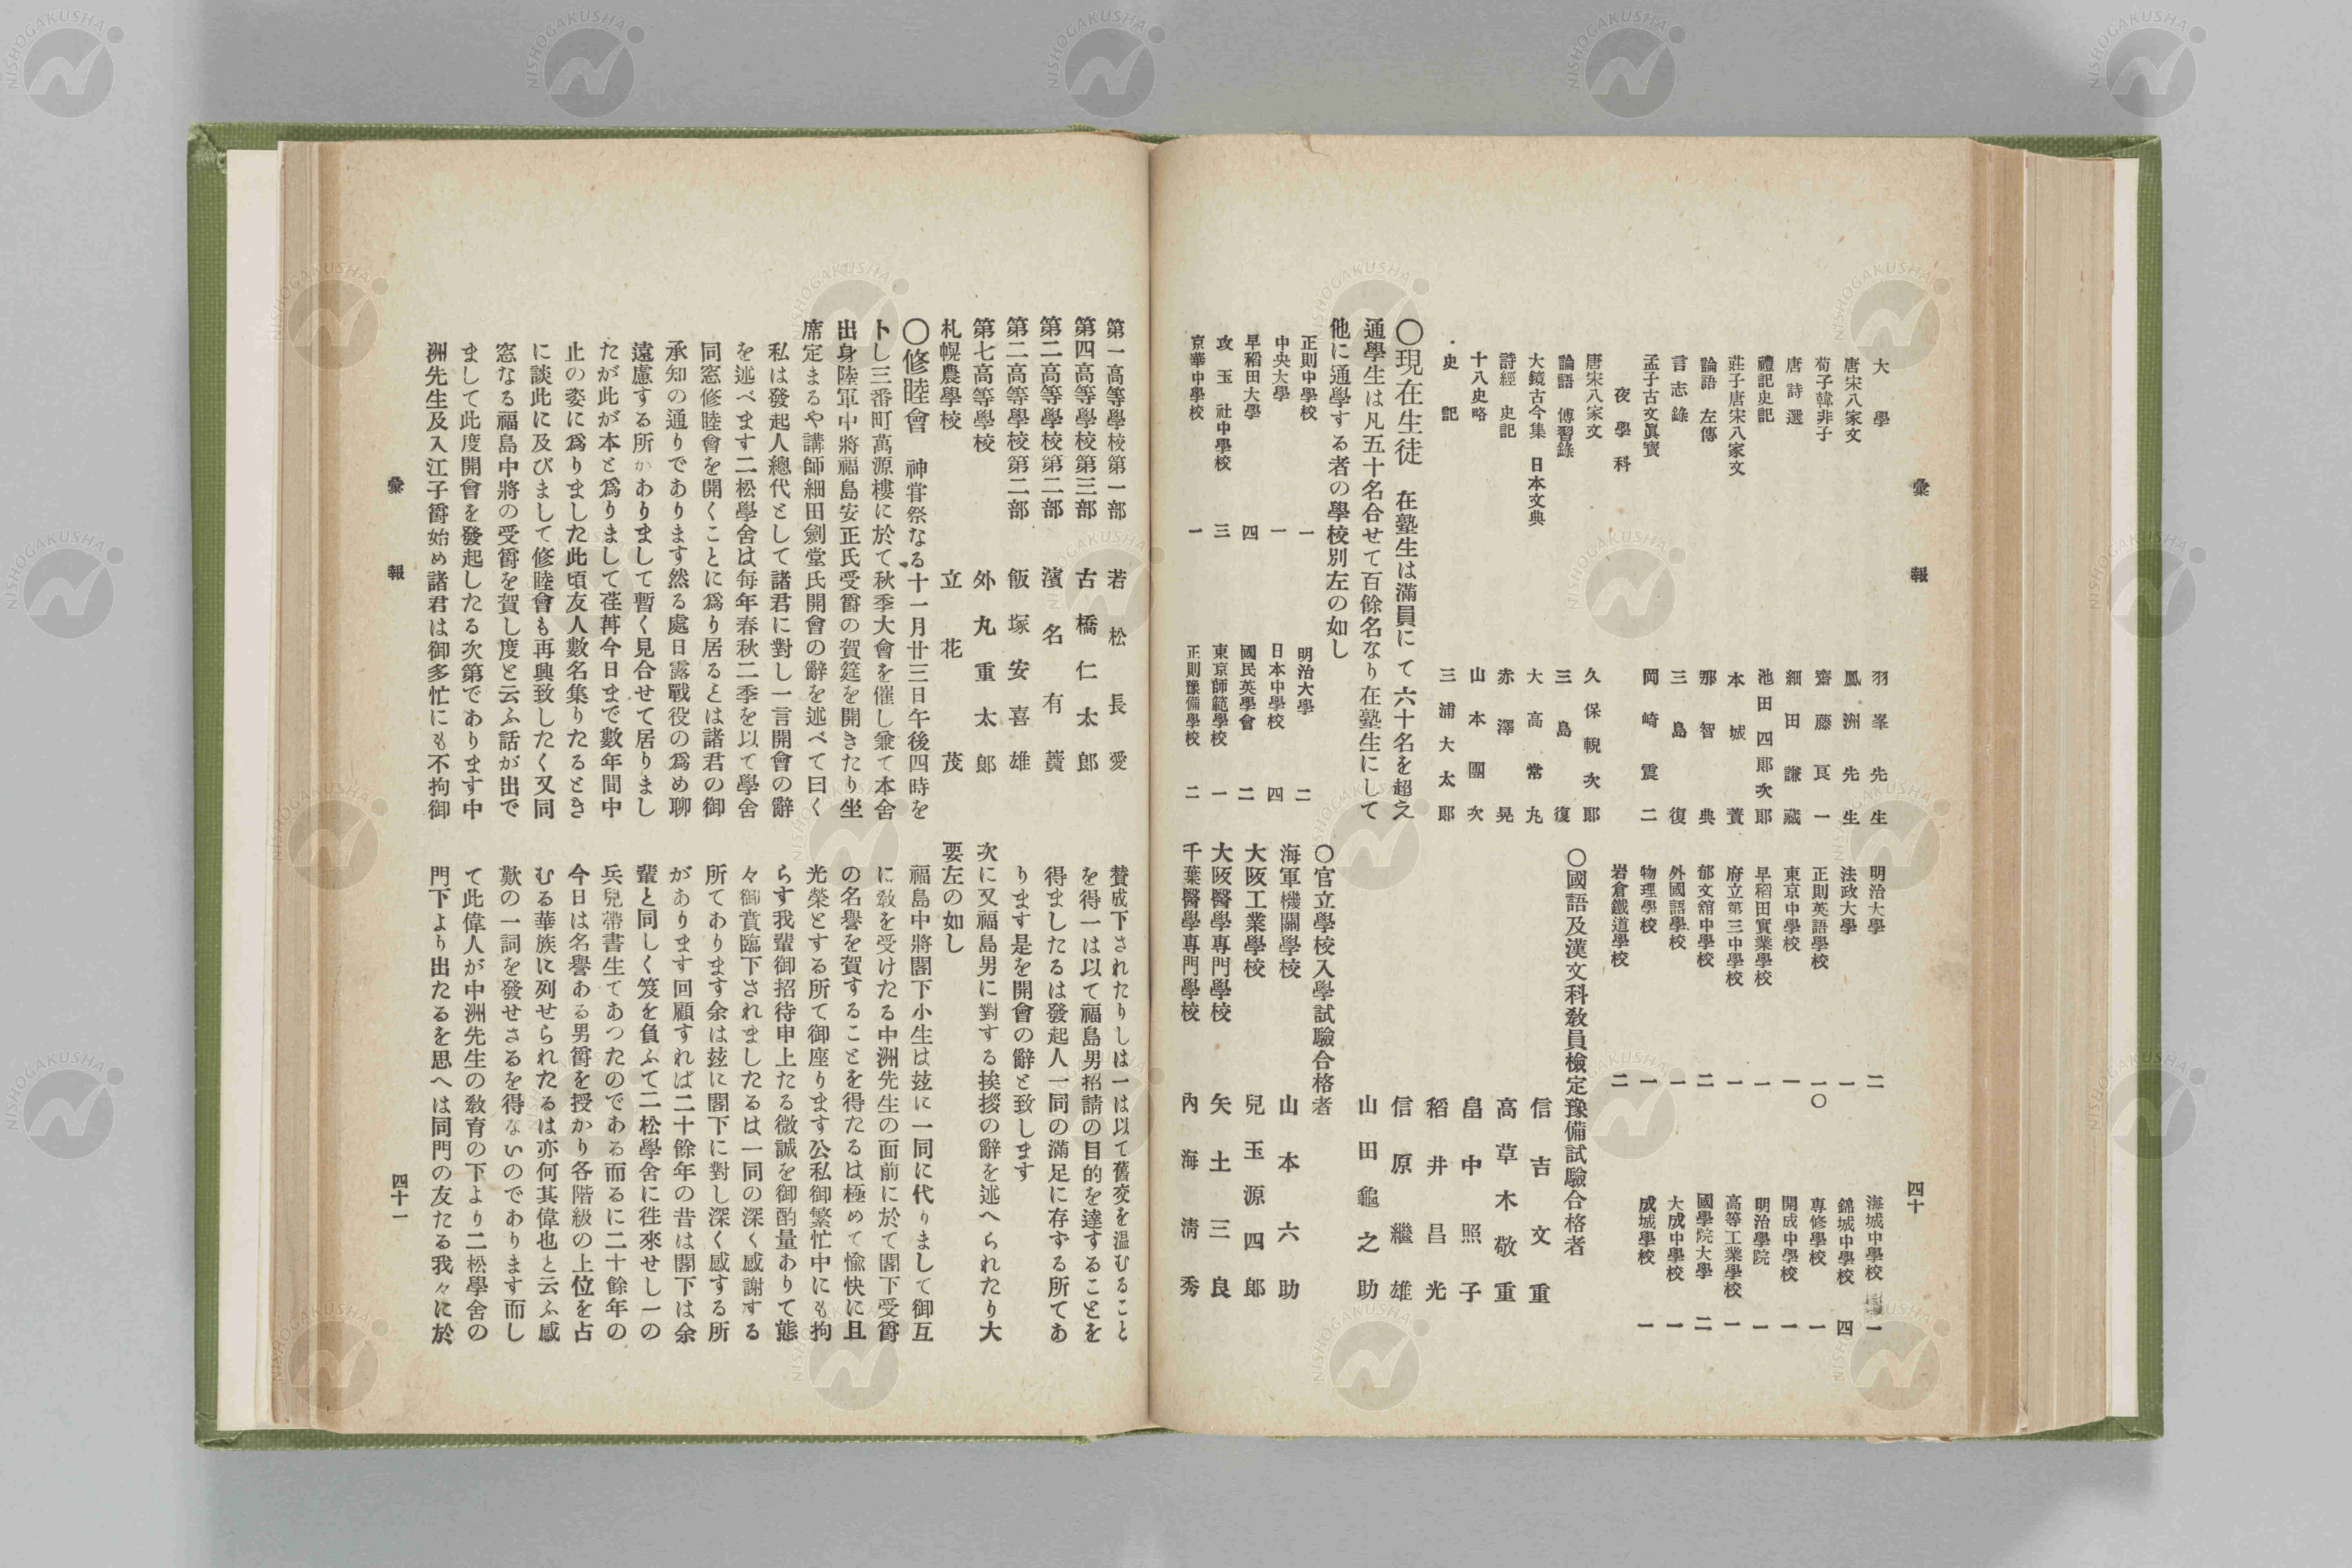 彙報
四十
大學　羽峯先生
唐宋八家文　鳳洲先生
荀子韓非子　齋藤良一
唐詩選　細田謙藏
禮記史記　池田四郎次郎
莊子唐宋八家文　本城蕡
論語　左傳　那智典
言志錄　三島復
孟子古文眞寶　岡崎震二
夜學科
唐宋八家文　久保輗次郎
論語　傳習錄　三島復
大鏡古今集　日本文典　大高常丸
詩經　史記　赤澤晃
十八史略　山本團次
史記　三浦大太郎
〇現在生徒　在塾生は滿員にて六十名を超え
通學生は凡五十名合せて百餘名なり在塾生にして
他に通學する者の學校別左の如し
正則中學校　一　明治大學　二
中央大學　一　日本中學校　四
早稻田大學　四　國民英學會　二
攻玉社中學校　三　東京師範學校　一
京華中學校　一　正則豫備學校　二
明治大學　二　海城中學校　一
法政大學　一　錦城中學校　四
正則英語學校　一〇　專修學校　一
東京中學校　一　開成中學校　一
早稻田實業學校　一　明治學院　一
府立第三中學校　一　高等工業學校　一
郁文舘中學校　二　國學院大學　二
外國語學校　一　大成中學校　一
物理學校　一　成城學校　一
岩倉鐵道學校　二
〇國語及漢文科敎員檢定豫備試驗合格者
信吉文重
高草木敬重
畠中照子
稻井昌光
信原繼雄
山田龜之助
〇官立學校入學試驗合格者
海軍機關學校　山本六助
大阪工業學校　兒玉源四郎
大阪醫學專門學校　矢土三良
千葉醫學專門學校　內海淸秀
第一高等學校第一部　若松長愛
第四高等學校第三部　古橋仁太郎
第二高等學校第二部　濱名有蕡
第二高等學校第二部　飯塚安喜雄
第七高等學校　外丸重太郎
札幌農學校　立花茂
〇修睦會　神甞祭なる十一月廿三日午後四時を
卜し三番町萬源樓に於て秋季大會を催し兼て本舍
出身陸軍中將福島安正氏受爵の賀筵を開きたり坐
席定まるや講師細田劍堂氏開會の辭を述べて曰く
私は發起人總代として諸君に對し一言開會の辭
を述べます二松學舍は每年春秋二季を以て學舍
同窓修睦會を開くことに爲り居るとは諸君の御
承知の通りであります然る處日露戰役の爲め聊
遠慮する所かありまして暫く見合せて居りまし
たが此が本と爲りまして荏苒今日まで數年間中
止の姿に爲りました此頃友人數名集りたるとき
に談此に及びまして修睦會も再興致したく又同
窓なる福島中將の受爵を賀し度と云ふ話が出で
まして此度開會を發起したる次第であります中
洲先生及入江子爵始め諸君は御多忙にも不拘御
賛成下されたりしは一は以て舊交を溫むること
を得一は以て福島男招請の目的を達することを
得ましたるは發起人一同の滿足に存ずる所てあ
ります是を開會の辭と致します
次に又福島男に對する挨拶の辭を述へられたり大
要左の如し
福島中將閣下小生は玆に一同に代りまして御互
に敎を受けたる中洲先生の面前に於て閣下受爵
の名譽を賀することを得たるは極めて愉快に且
光榮とする所て御座ります公私御繁忙中にも拘
らす我輩御招待申上たる微誠を御酌量ありて態
々御賁臨下されましたるは一同の深く感謝する
所てあります余は玆に閣下に對し深く感する所
があります回顧すれば二十餘年の昔は閣下は余
輩と同しく笈を負ふて二松學舍に徃來せし一の
兵兒帶書生てあつたのである而るに二十餘年の
今日は名譽ある男爵を授かり各階級の上位を占
むる華族に列せられたるは亦何其偉也と云ふ感
歎の一詞を發せさるを得ないのであります而し
て此偉人が中洲先生の敎育の下より二松學舍の
門下より出たるを思へは同門の友たる我々に於
彙報
四十一
NISHOGAKUSHA